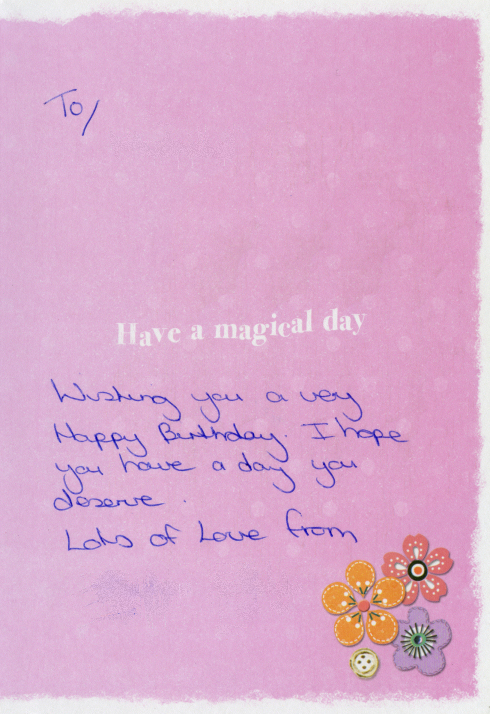 To/
Have a magical day
Wishing you a very
Happy Birthday. I hope
you have a day you
deserve.
Lots of Love from